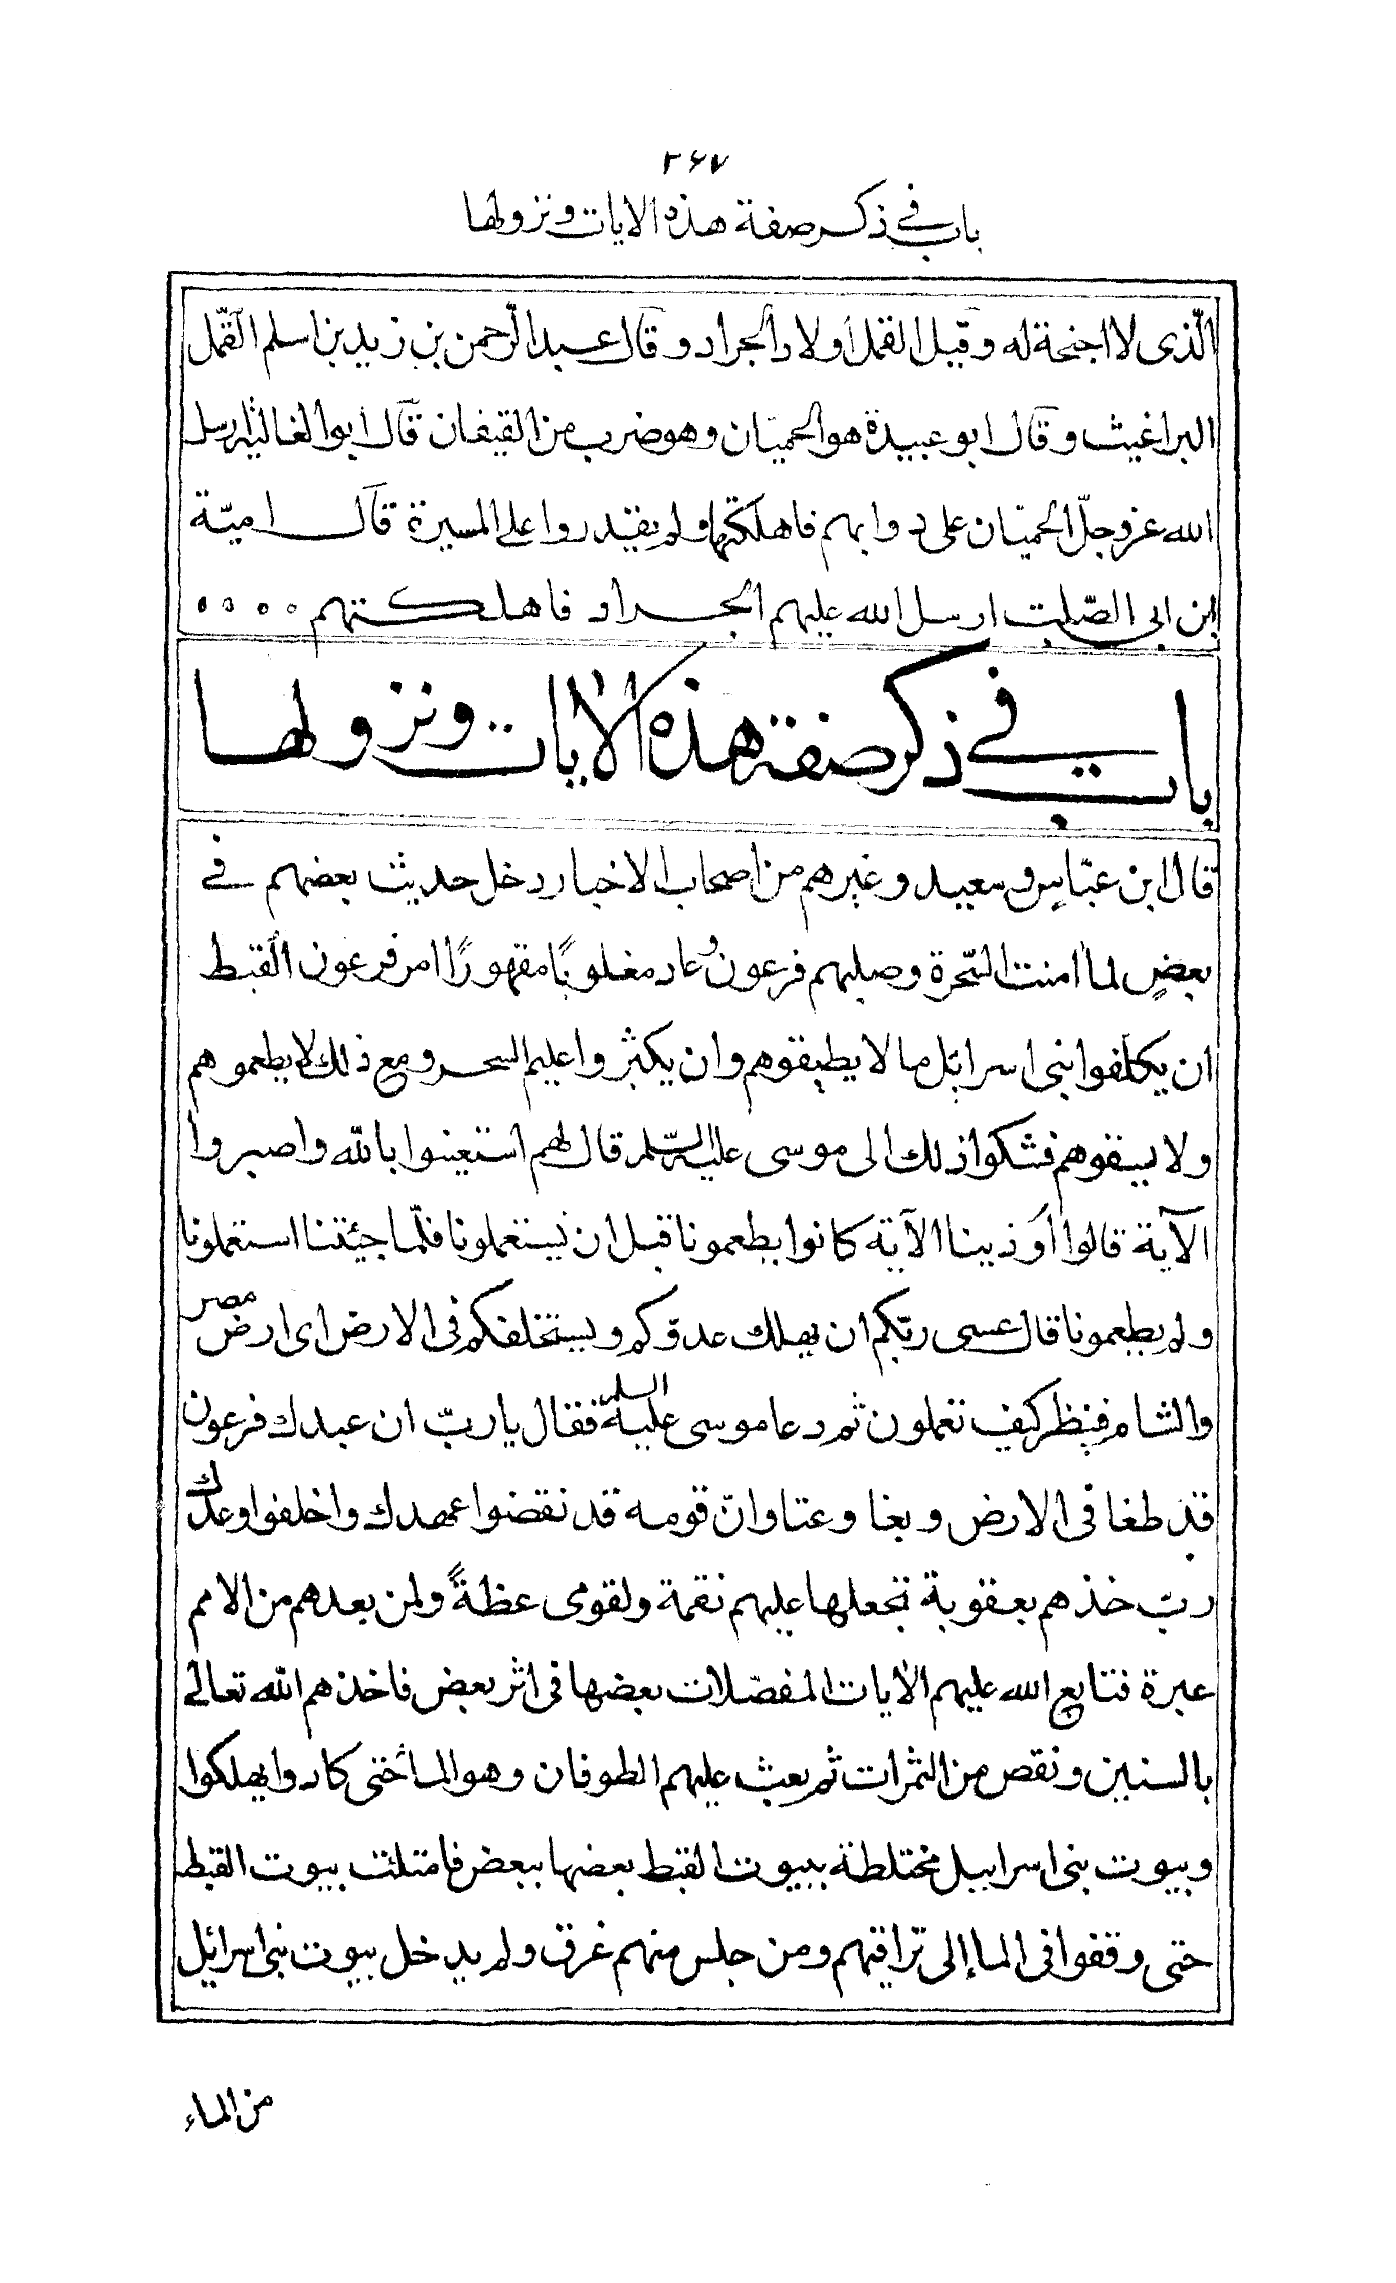 ٢٦٧
باب في ذكر صفة هذه الايات ونزولها
الّذى لا اجنحة له وقيل القمل أولاد الجراد وقال عبد الرّحمن بن زيد بن اسلم القمّل
البراغيث وقال ابو عبيدة هو الحميّان وهو ضرب من القيفان قال ابو الغالية ارسل
الله عز وجلّ الحميّان على دوابهم فاهلكتها ولم يقتدروا على المسيرة قال اميّة
ابن ابى الصّلت ارسل الله عليهم الجراد فاهلكتهم
باب في ذكر صفة هذه الايات ونزولها
قال ابن عبّاس وسعيد وغيرهم من اصحاب الاخبار دخل حديث بعضهم في
بعضٍ لما امنت السّحرة وصلبهم فرعون وعاد مغلوبًا مقهورًا امر فرعون القبط
ان يكلفوا بنى اسرائل ما لا يطيقوهم وان يكثروا عليهم السحر ومع ذلك لا يطعموهم
ولا يسقوهم فشكوا ذلك الى موسى عليه السّلم قال لهم استعينوا بالله واصبروا
الآية قالوا أوذينا الآية كانوا يطعمونا قبل ان يستعملونا فلمّا جئتنا استعملونا
ولم يطعمونا قال عسى ربّكم ان يهلك عدوّكم ويستخلفكم فى الارض اى ارض مصر
والشام فينظر كيف تعملون ثم دعا موسى عليه السلم فقال يا ربّ ان عبدك فرعون
قد طغا فى الارض وبغا وعتا وانّ قومه قد نقضوا عهدك واخلفوا وعدك
رب خذهم بعقوبة تجعلها عليهم نقمة ولقومى عظةً ولمن بعدهم من الامم
عبرة فتابع الله عليهم الايات المفصّلات بعضها فى اثر بعض فاخذهم الله تعالى
بالسنين ونقص من الثمرات ثم بعث عليهم الطوفان وهو الماء حتى كادوا يهلكوا
وبيوت بنى اسراييل مختلطة ببيوت القبط بعضها ببعض فامتلئت بيوت القبط
حتى وقفوا فى الماء إلى تراقيهم ومن جلس منهم غرق ولم يدخل بيوت بنى اسرائيل
من الماء